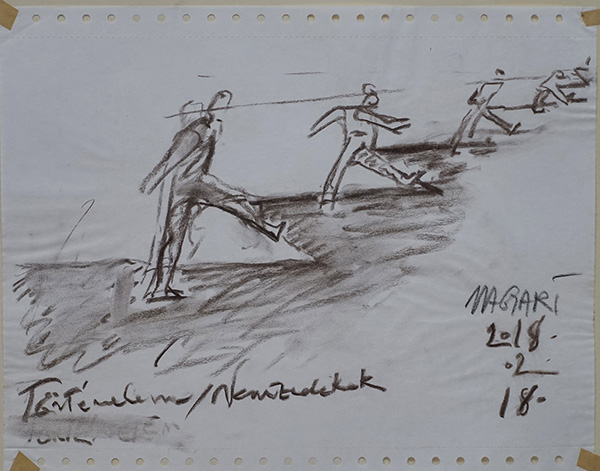 MAGYARI
2018.
02.
18.
Történelem/Nemzedékek